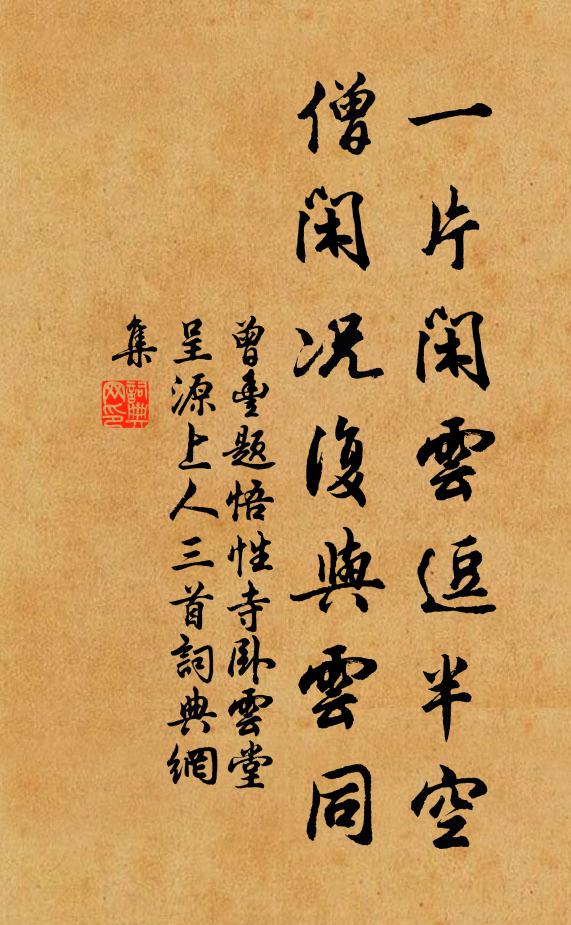 一片閑雲逗半空
僧閑况復與雲同
曾豐題悟性寺卧雲堂
呈源上人三首詞典網
集
詞典
网印